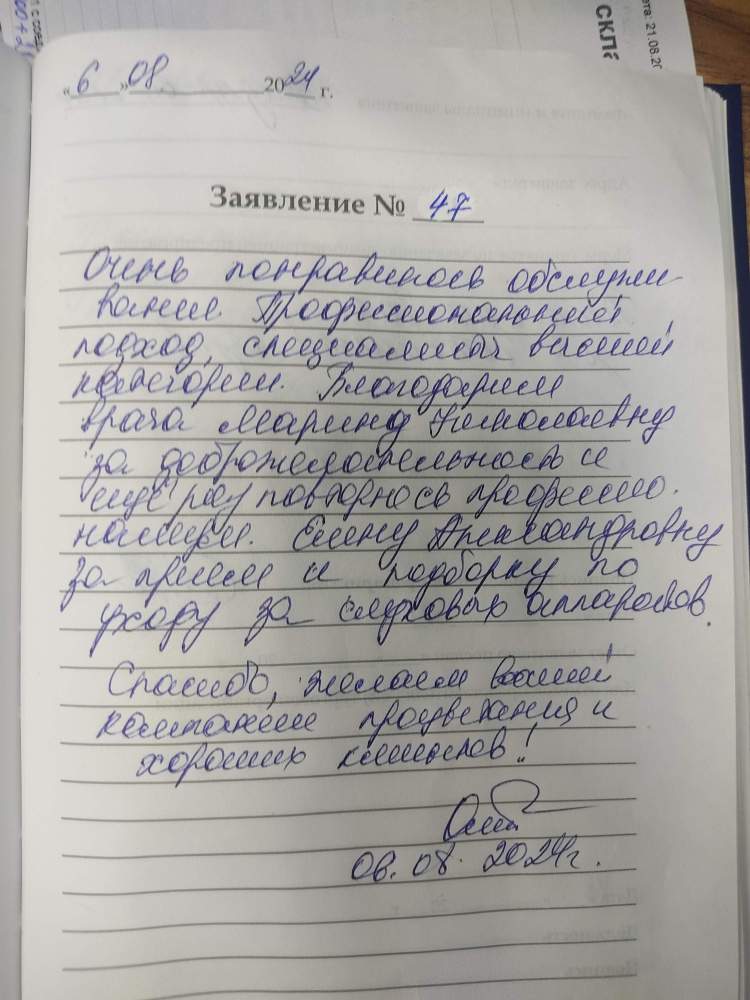 «6» 08 2024 г.
Заявление № 47
Очень понравилось обслужи
вание. Профессиональный
подход, специалисты высшей
категории. Благодарим
врача Марину Николаевну
за доброжелательность и
ещё раз повторюсь профессио.
нализм. Елену Александровну
за прием и подборку по
уходу за слуховых аппаратов.
Спасибо, желаем вашей
компании процветания и
хороших клиентов!
06.08.2024г.
скла
ета: 21.08.20